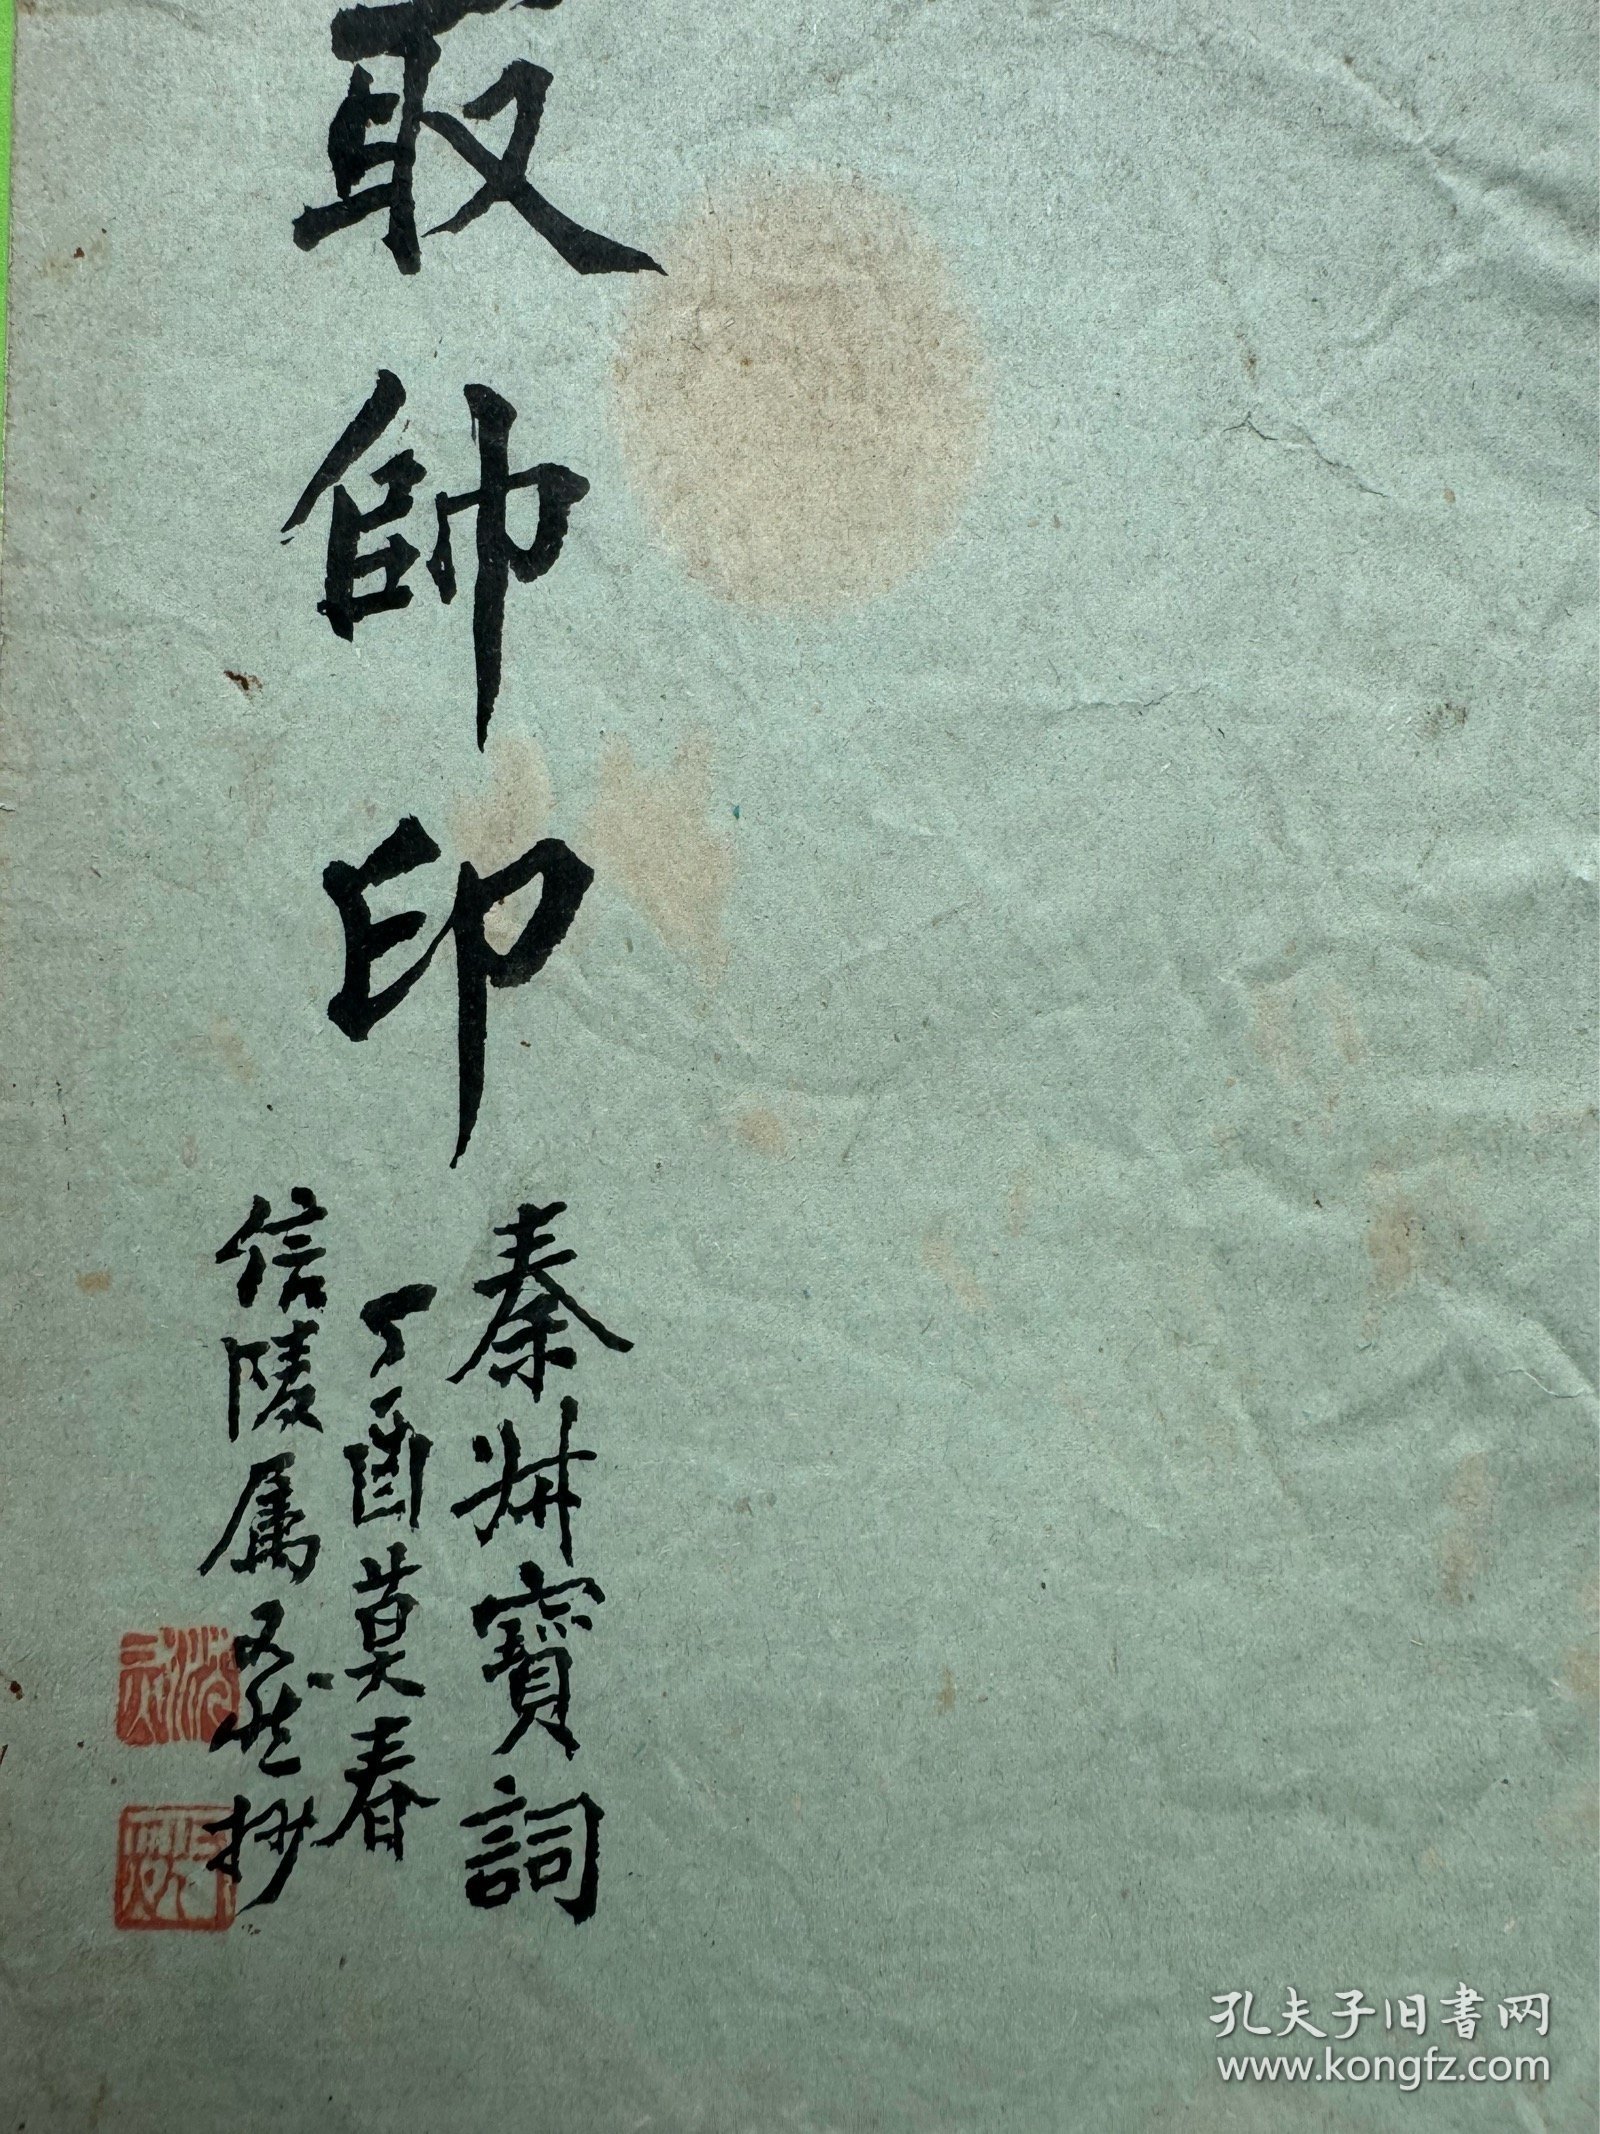 取帥印
秦叔寶詞
丁酉莫春
信陵屬
抄
孔夫子旧書网
www.kongfz.com